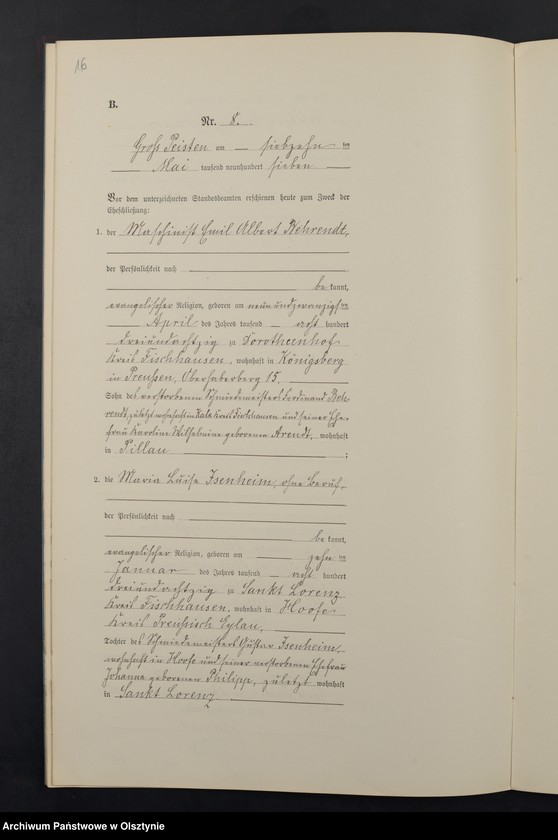 16
B.
Nr. 8.
Gross Peisten am — siebzehn ten
Mai tausend neunhundert sieben —
Vor dem unterzeichneten Standesbeamten erschienen heute zum Zweck der
Eheschließung:
1. der Maschinist Emil Albert Behrendt,
der Persönlichkeit nach
be kannt,
evangelischer Religion, geboren am neunundzwanzigsten
April des Jahres tausend — acht hundert
dreiundachtzig zu Dorotheenhof
Kreis Fischhausen, wohnhaft in Königsberg
in Preußen, Oberhaberberg 15.
Sohn des verstorbenen Schmiedemeisters Ferdinand Beh-
rendt, zuletzt wohnhaft in Kreis Fischhausen und seiner Ehe-
frau Karoline Wilhelmine geborenen Arendt, wohnhaft
in Pillau ;
2. die Maria Luise Isenheim, ohne Beruf,
der Persönlichkeit nach
be kannt,
evangelischer Religion, geboren am — zehn ten
Januar des Jahres tausend — acht hundert
dreiundachtzig zu Sankt Lorenz
Kreis Fischhausen, wohnhaft in Hoofe
Kreis Preußisch Eylau,
Tochter des Schmiedemeisters Gustav Isenheim,
wohnhaft in Hoofe und seiner verstorbenen Ehefrau
Johanna geborenen Philipp, zuletzt wohnhaft
in Sankt Lorenz
Archiwum Państwowe w Olsztynie